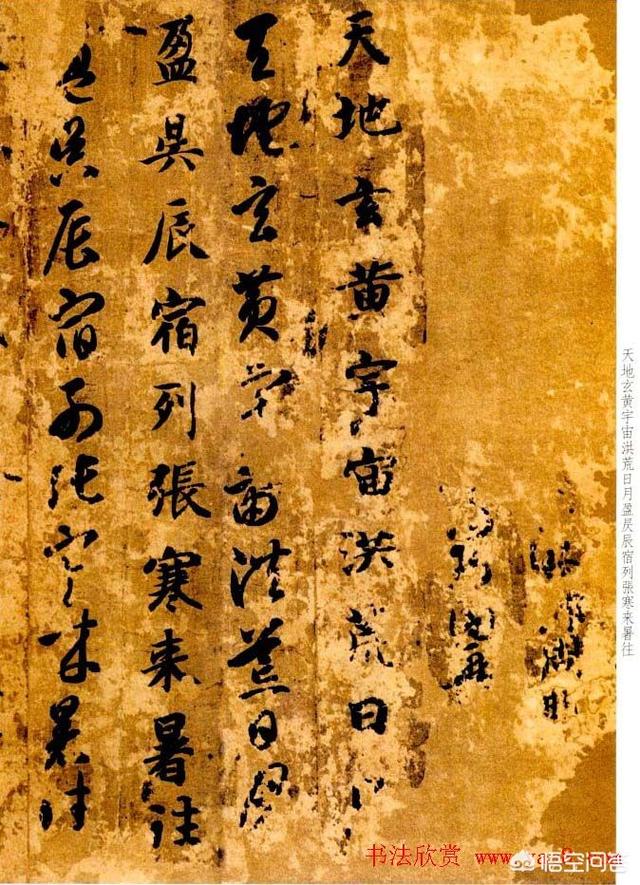 天地玄黄宇宙洪荒日月盈昃辰宿列張寒来暑往
天地玄黄宇宙洪荒日月
天地玄黄宇宙洪荒日月
盈昃辰宿列張寒来暑往
盈昃辰宿列張寒来暑往
书法欣赏
悟空问答